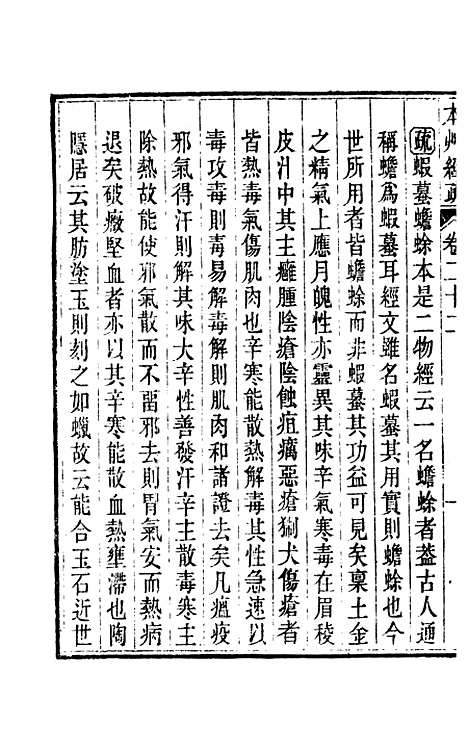 本艸經疏 卷二十二 一
疏蝦蟇蟾蜍本是二物經云一名蟾蜍者葢古人通
稱蟾爲蝦蟇耳經文雖名蝦蟇其用實則蟾蜍也今
世所用者皆蟾蜍而非蝦蟇其功益可見矣稟土金
之精氣上應月魄性亦靈異其味辛氣寒毒在眉稜
皮汁中其主癰腫陰瘡陰蝕疽癘惡瘡猘犬傷瘡者
皆熱毒氣傷肌肉也辛寒能散熱解毒其性急速以
毒攻毒則毒易解毒解則肌肉和諸證去矣凡瘟疫
邪氣得汗則解其味大辛性善發汗辛主散毒寒主
除熱故能使邪氣散而不畱邪去則胃氣安而熱病
退矣破癥堅血者亦以其辛寒能散血熱壅滯也陶
隱居云其肪塗玉則刻之如蠟故云能合玉石近世